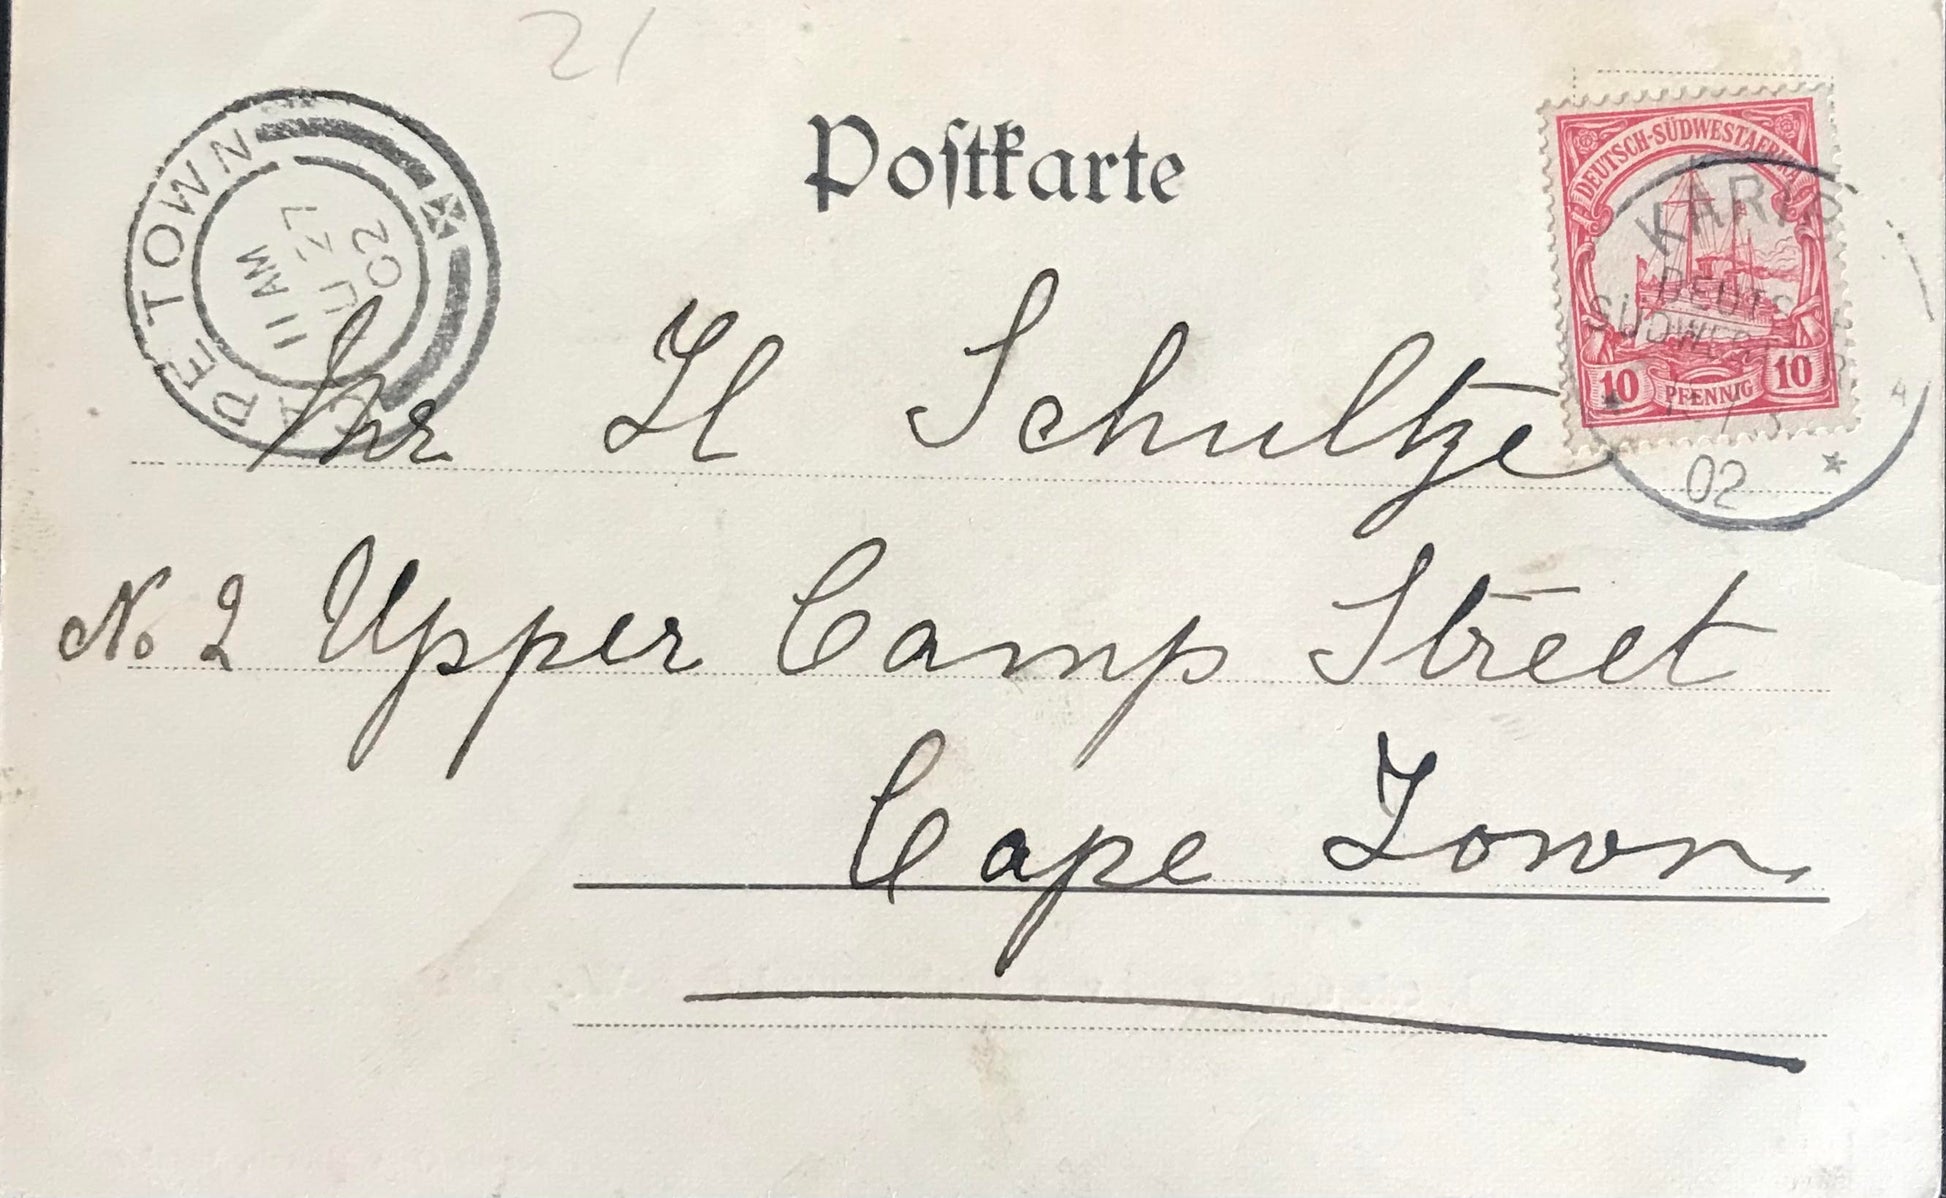 21
Postkarte
CAPETOWN
11 AM
27
02
DEUTSCH-SÜDWESTAFRIKA
10 PFENNIG 10
KARIB
DEUTSCH
SÜDWEST
02
H Schultze
No 2 Upper Camp Street
Cape Town